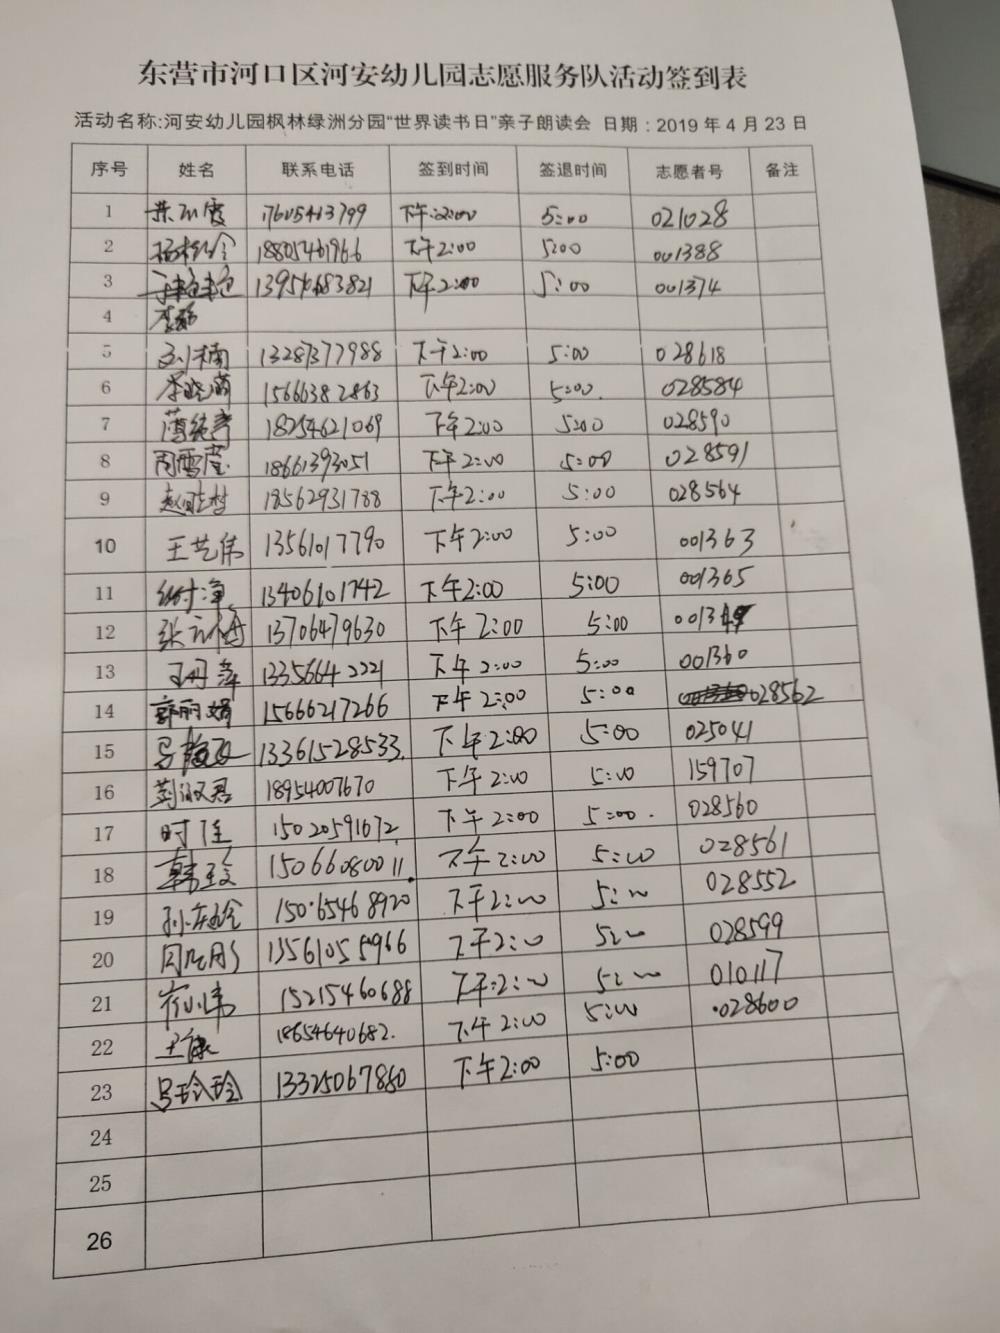 东营市河口区河安幼儿园志愿服务队活动签到表
活动名称:河安幼儿园枫林绿洲分园“世界读书日”亲子朗读会 日期：2019年4月23日
序号 姓名 联系电话 签到时间 签退时间 志愿者号 备注
1 17605413799 下午:2:00 5:00 021028
2 18805461966 下午2:00 5:00 001388
3 下午2:00 5:00 001374
4
5 刘楠 13287377988 下午2:00 5:00 028618
6 15666382863 下午2:00 5:00. 028584
7 18254621069 下午2:00 5:00 028590
8 周雪莹 18661393051 下午2:00 5:00 028591
9 18562931788 下午2:00 5:00 028564
10 王艺伟 13561017790 下午2:00 5:00 001363
11 13406101742 下午2:00 5:00 001365
12 13706479630 下午2:00 5:00
13 13356642221 下午2:00 5:00 001360
14 郭丽娟 15666217266 下午2:00 5:00 028562
15 13361528533. 下午2:00 5:00 025041
16 18954007670 下午2:00 5:00 159707
17 时佳 15020591672 下午2:00 5:00. 028560
18 韩玲 15066080011. 下午2:00 5:00 028561
19 15065468920 下午2:00 5:00 028552
20 13561055966 下午2:00 5:00 028599
21 15215460688 下午:2:00 5:00 010117
22 王康 18654640682. 下午2:00 5:00 028600
23 马玲玲 13325067880 下午2:00 5:00
24
25
26